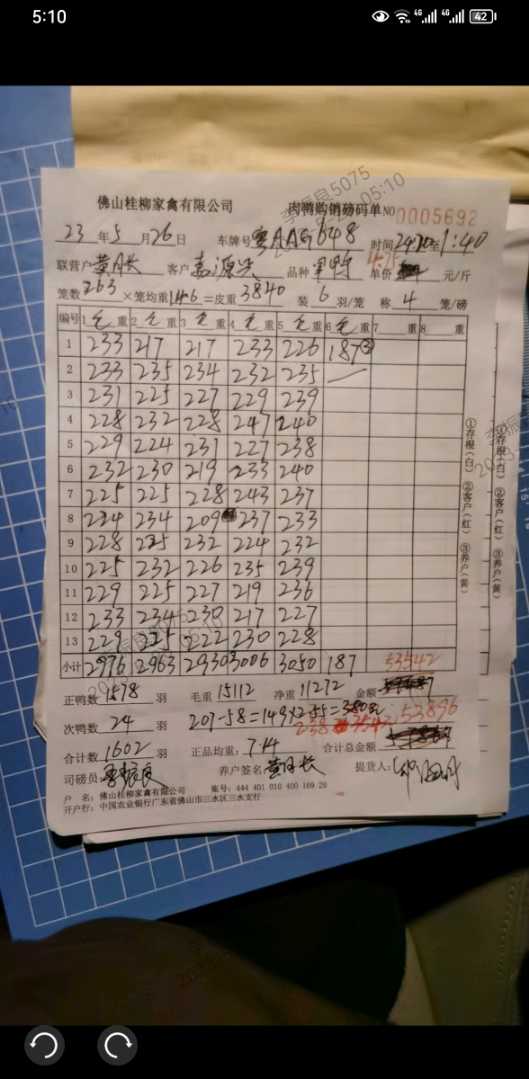 5:10
42
佛山桂柳家禽有限公司 肉鸭购销磅码单 NO 0005692
23年5月26日 车牌号 粤AAG648 时间 1:40
联营户 客户 品种 单价 4.75 元/斤
笼数263×笼均重14.6=皮重3840 装6羽/笼 称4笼/磅
编号 1毛重 2毛重 3毛重 4毛重 5毛重 6毛重 7重 8重
1 233 217 217 233 226 187③
2 223 235 234 232 235 —
3 231 225 227 229 239
4 228 232 228 247 240
5 229 224 231 227 238
6 232 230 219 233 240
7 225 225 228 243 237
8 224 234 209 237 233
9 228 225 232 224 232
10 225 232 226 235 239
11 229 225 227 219 236
12 233 234 230 217 227
13 229 225 222 230 228
小计 2976 2963 2930 3006 3050 187 53542
正鸭数1578羽 毛重15112 净重11272 金额
次鸭数24羽 207-58=149×2.55=380元
238 3542 53896
合计数1602羽 正品均重:7.14 合计总金额
司磅员: 养户签名: 提货人:
户 名: 佛山桂柳家禽有限公司 账号: 444 401 010 400 169 20
开户行: 中国农业银行广东省佛山市三水区三水支行
①存根(白) ②客户(红) ③养户(黄)
①存根(白) ②客户(红) ③养户(黄)